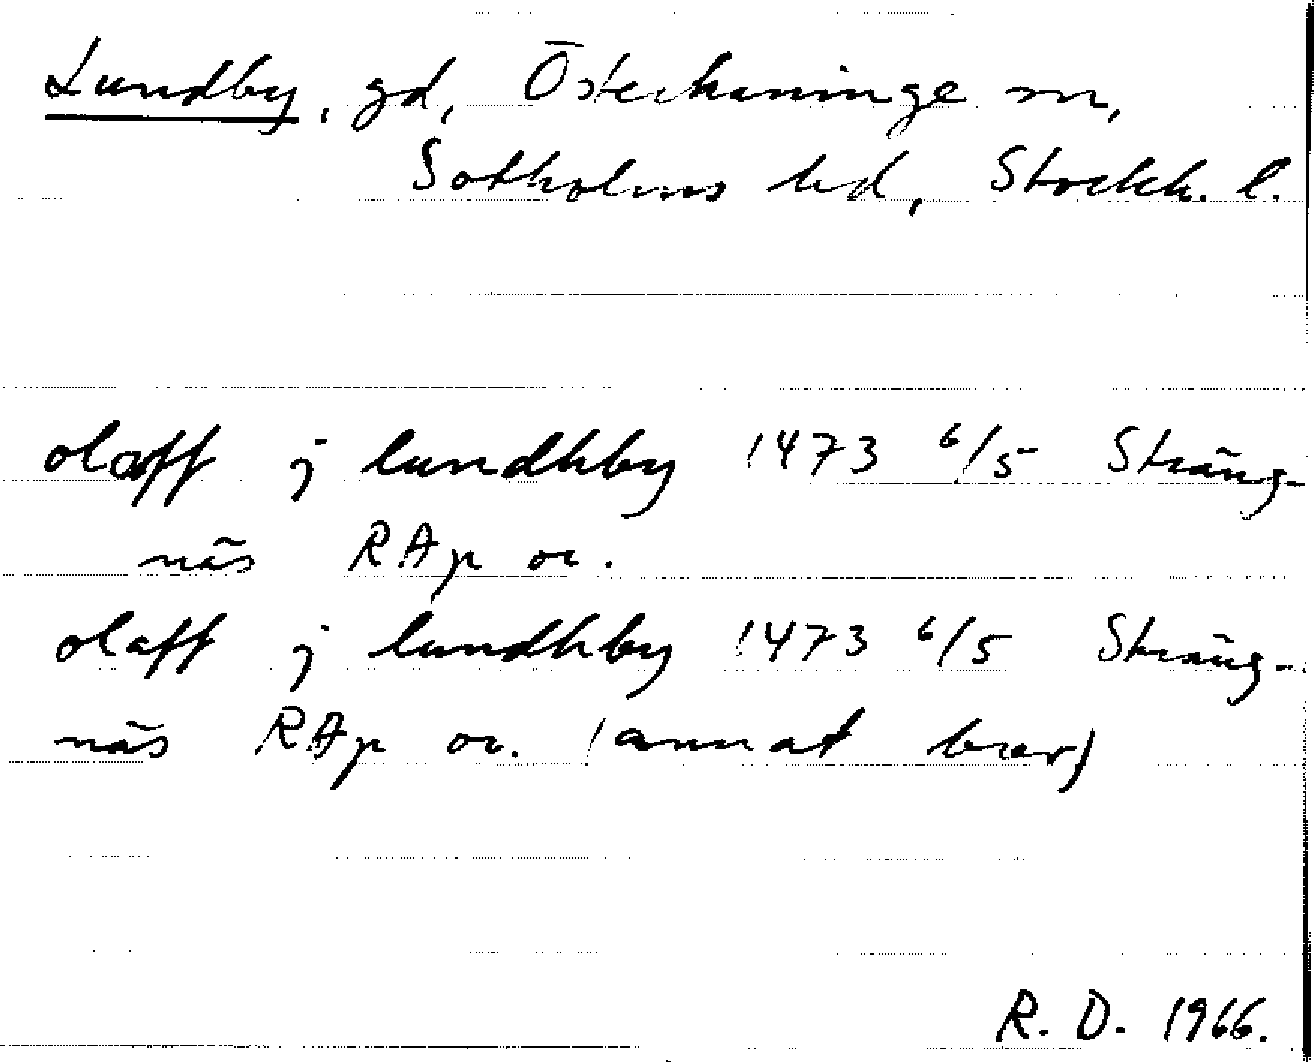 Lundby, gd, Österhaninge sn,
Sotholms hd, Stockh. l.
olaff j lundhby 1473 6/5 Sträng-
näs RAp or.
olaff j lundhby 1473 6/5 Sträng-
näs RAp or. (annat brev)
R. D. 1966.